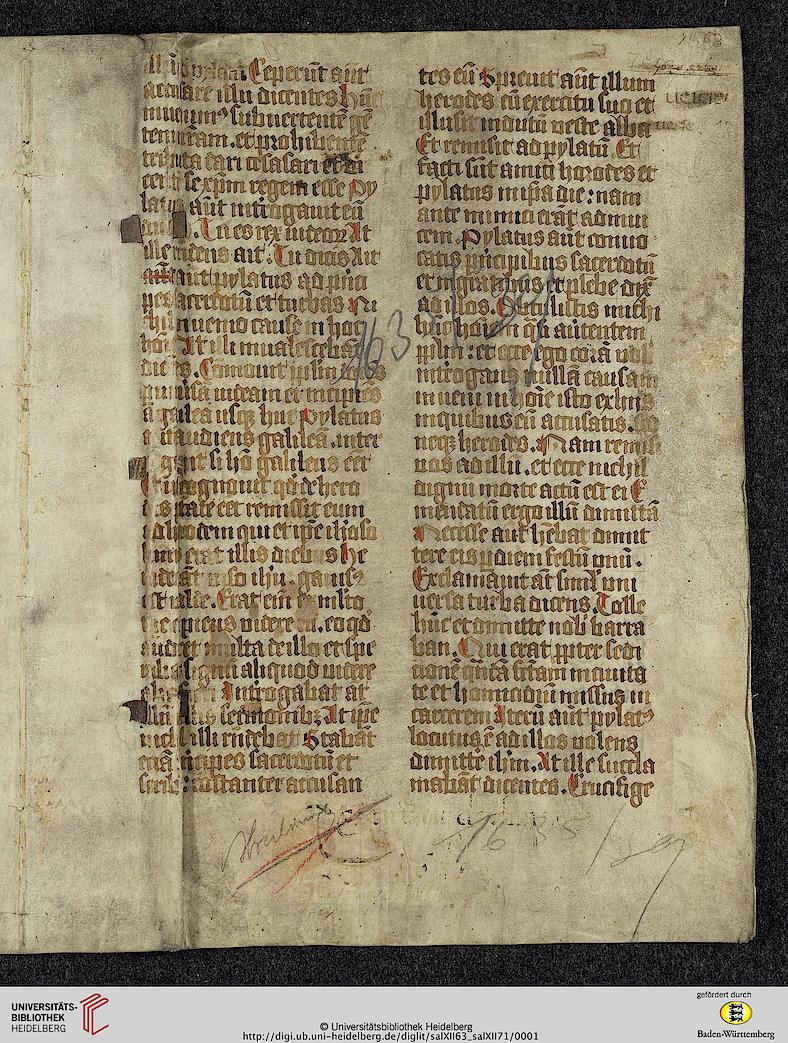 Ceperūt aūt
accusare illū dicentes hūc
subuertentē gē
tem nr̄am. et prohibentē
tributa dari cesasari et di
cent se xp̄m regem esse Py
latus aūt int̄rogauit eū
Tu es rex iudeoꝝ At
ille r̄ndens ait. Tu dicis Ait
aūt pylatus ad p̄nci
pes sacerdotū et turbas Ni
chil inuenio cause in hoc
hoīe At illi inualescebāt
dicētes. Cōmouit pplm̄
iudeam et incipiēs
a galilea usqꝫ huc Pylatus
a ūt audiens galileā. inter
si hō galileus eēt
Et ut cognouit qd̓ de hero
dis p̄tate eēt remisit eum
ad herodem qui et ip̄e iheroso
limis erat illis diebus He
rodes uiso ihū. gauisꝰ
est ualde. Erat eīn ex mlto
t̄pe cupiens uidere eū. eo qd̓
audiret multa de illo et spe
signū aliquod uidere
Int̄rogabat at̄
illū sermonibꝫ At ip̄e
nichil illi rn̄debat Stabāt
etiā p̄ncipes sacerdotū et
scribe cōstanter accusan
tes eū Spreuit aūt illum
herodes cū exercitu suo et
illusit indutū ueste alba
Et remisit ad pylatū Et
facti sūt amici herodes et
pylatus in ip̄a die: nam
ante inimici erāt ad inui
cem. Pylatus aūt conuo
catis p̄ncipibus sacerdotū
et magratibus et plebe dix̄
ad illos. Optulistis michi
hūc hoīem q̄si auertentem
pplm̄: et ecce ego corā uob̄
int̄rogans nullā causam
inueni in hoīe isto ex hiis
in quibus eū accusatis.
neqꝫ herodes. Nam remisi
uos ad illū. et ecce nichil
dignū morte actū est ei E
mendatū ergo illū dimittā
Necesse aūt hēbat dimit
tere eis p̱ diem festū unū.
Exclamauit at̄ simul̓ uni
uersa turba dicens. Tolle
hūc et dimitte nob̄ barra
ban. Qui erat p̱pter sedi
cionē q̄ndā fc̄tam in ciuita
te et homicidiū missus in
carcerem Iterū aūt pylatꝰ
locutus ē ad illos uolens
dimitte ihm̄. At ille succla
mabāt dicentes. Crucifige
163
1635/
UNIVERSITÄTS-
BIBLIOTHEK
HEIDELBERG
© Universitätsbibliothek Heidelberg
http://digi.ub.uni-heidelberg.de/diglit/salXII63_salXII71/0001
gefördert durch
Baden-Württemberg